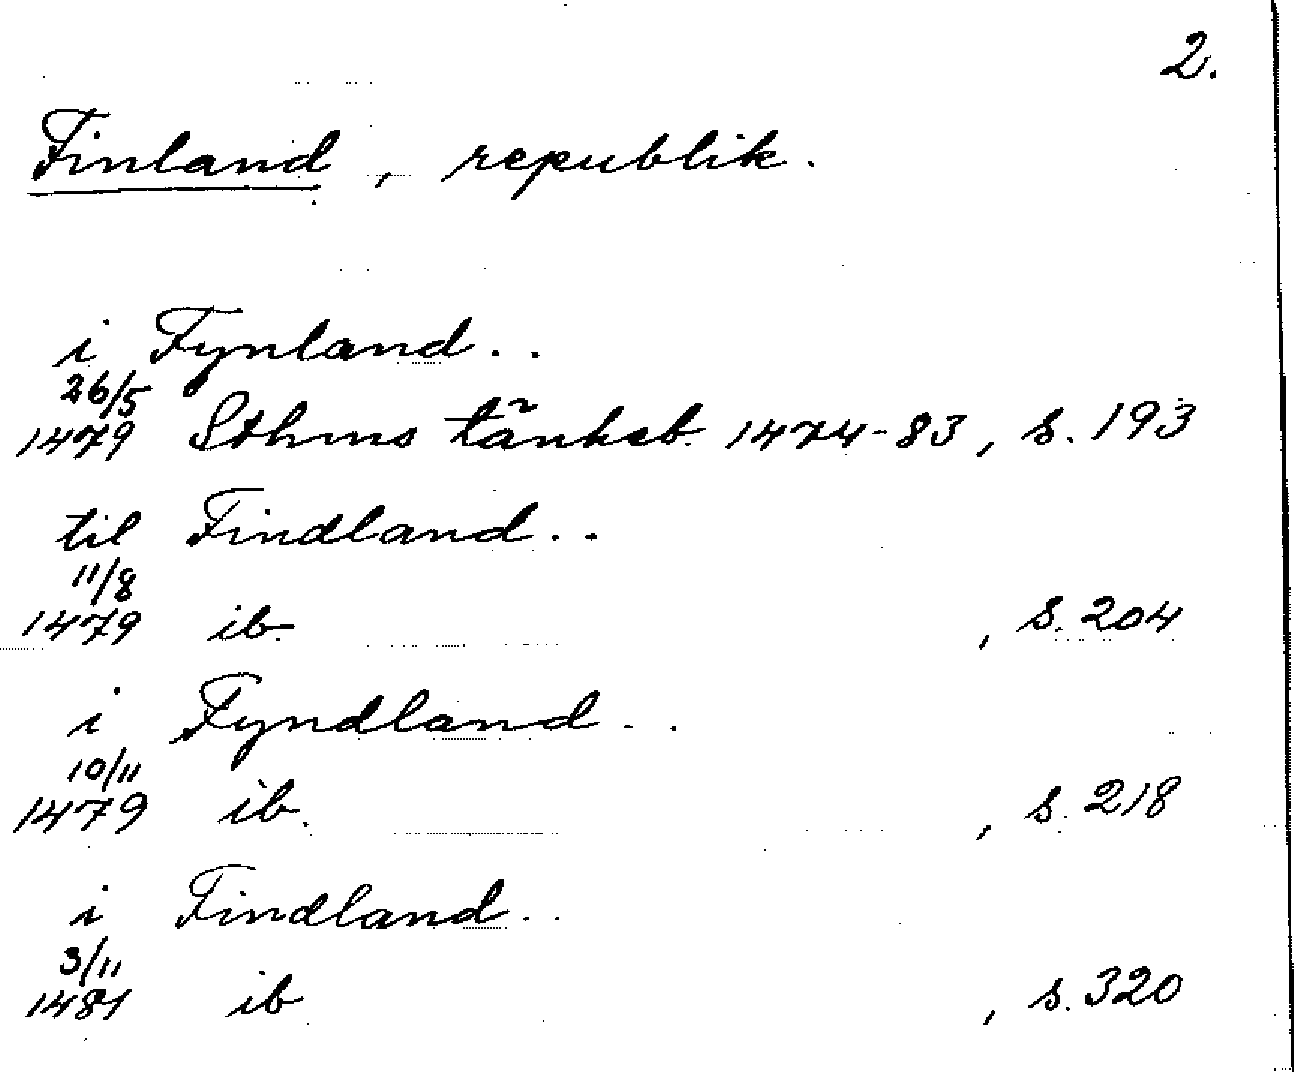 2.
Finland, republik.
i Fynland..
26/5
1479 Sthms tänkeb. 1474-83, s. 193
til Findland..
11/8
1479 ib. , s. 204
i Fyndland..
10/11
1479 ib. , s. 218
i Findland..
3/11
1481 ib , s. 320